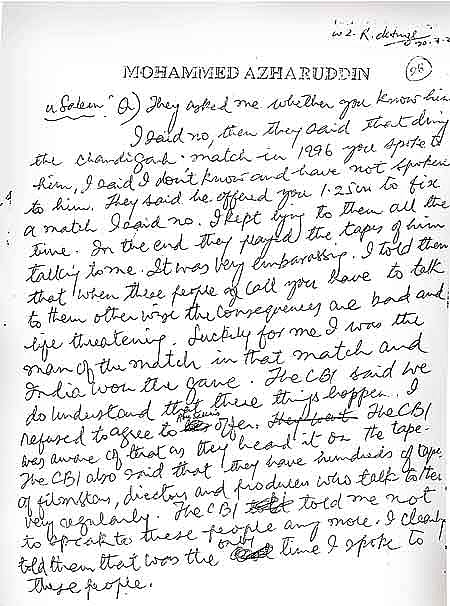 MOHAMMED AZHARUDDIN
u Salem" Q) They asked me whether you know him
I said no, then they said that during
the chandigarh. match in 1996 you spoke to
him, I said I don't know and have not spoken
to him. They said he offered you 1.25cr to fix
a match I said no. I kept lying to them all the
time. In the end they played the tapes of him
talking to me. It was very embarassing. I told them
that when these people call you have to talk
to them other wise the consequences are bad and
life threatening. Luckily for me I was the
man of the match in that match and
India won the game. The CBI said we
do understand that these things happen. I
refused to agree to offer. They want The CBI
was aware of that as they heard it on the tape.
The CBI also said that they have hundreds of tape
of filmstars, directors and producers who talk to them
very regularly. The CBI told me not
to speak to these people any more. I clearly
told them that was the only time I spoke to
these people.